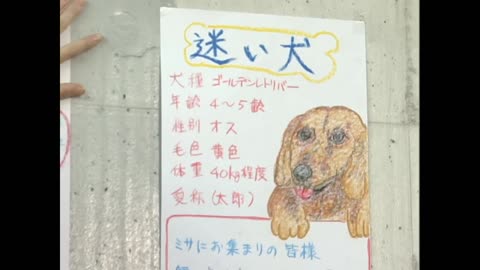 迷い犬
犬種 ゴールデンレトリバー
年齢 4〜5齢
性別 オス
毛色 黄色
体重 40kg程度
愛称(太郎)
ミサにお集まりの皆様